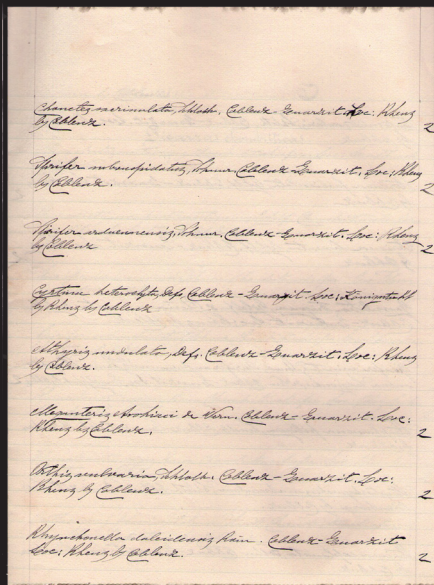 Chonetes sarcinulata, Schloth. Coblenz-Quarzit. Loc: Rhens
by Coblenz. 2
Spirifer subcuspidatus, Schnur. Coblenz-Quarzit. Loc: Rhens
by Coblenz. 2
Spirifer arduennensis, Schnur. Coblenz-Quarzit. Loc: Rhens
by Coblenz 2
Cyrtina heteroclyta, Defr. Coblenz-Quarzit. Loc: Königsstuhl
by Rhens by Coblenz 2
Athyris undulata, Defr. Coblenz-Quarzit. Loc: Rhens
by Coblenz.
Meganteris Archiaci de Vern. Coblenz-Quarzit. Loc:
Rhens by Coblenz. 2
Orthis vulvaria, Schloth. Coblenz-Quarzit. Loc:
Rhens by Coblenz. 2
Rhynchonella daleidensis Röm. Coblenz-Quarzit
Loc: Rhens by Coblenz. 2